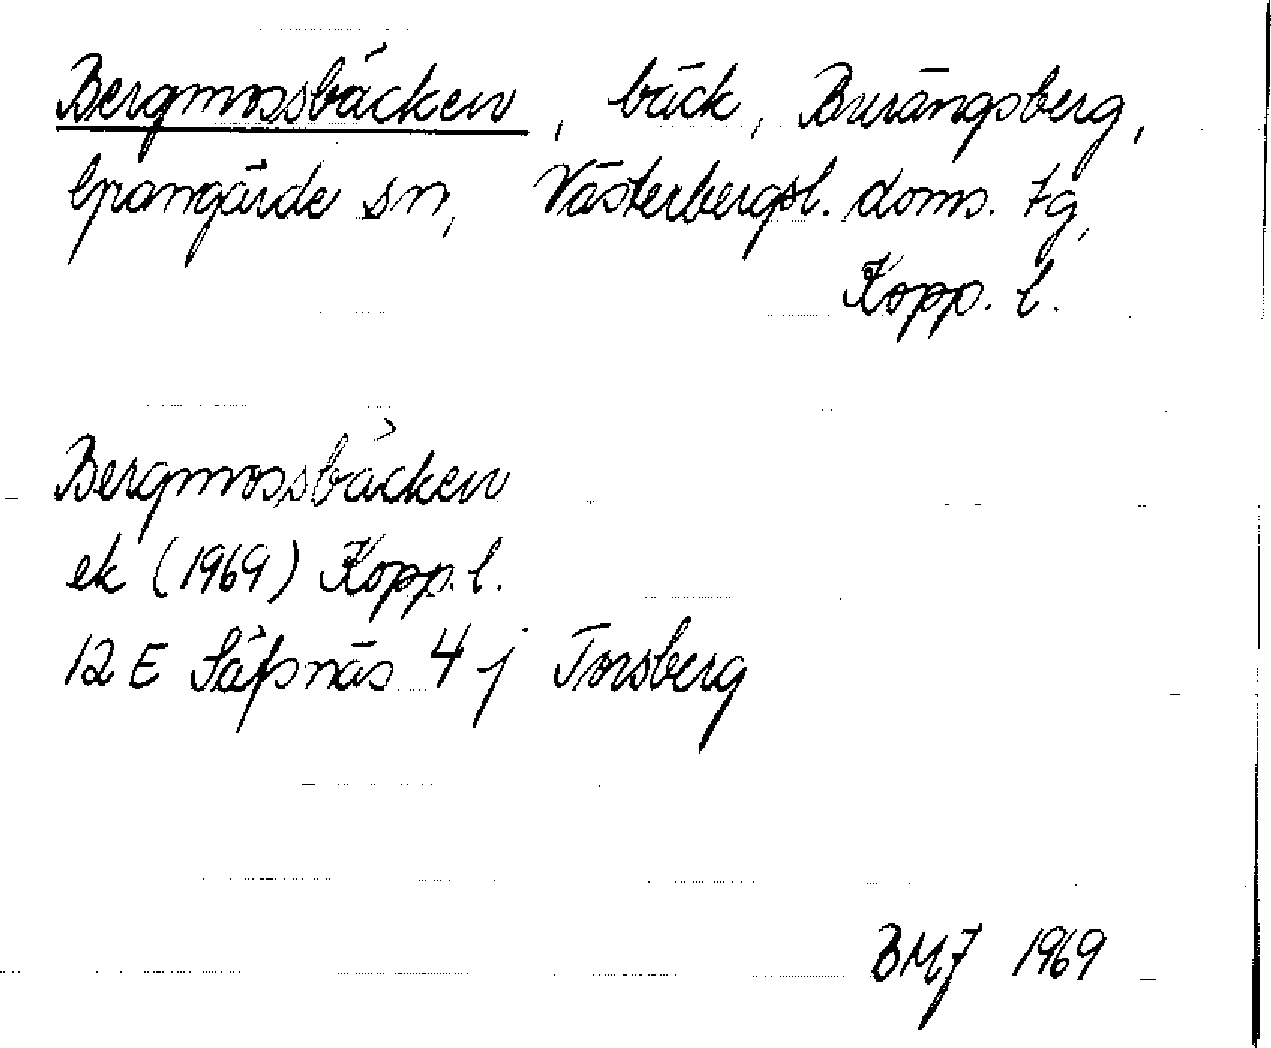 Bergmossbäcken, bäck, Burängsberg,
Grangärde sn, Västerbergsl. doms. tg,
Kopp. l.
Bergmossbäcken
ek (1969) Kopp. l.
12 E Säfsnäs 4 j Torsberg
BMJ 1969